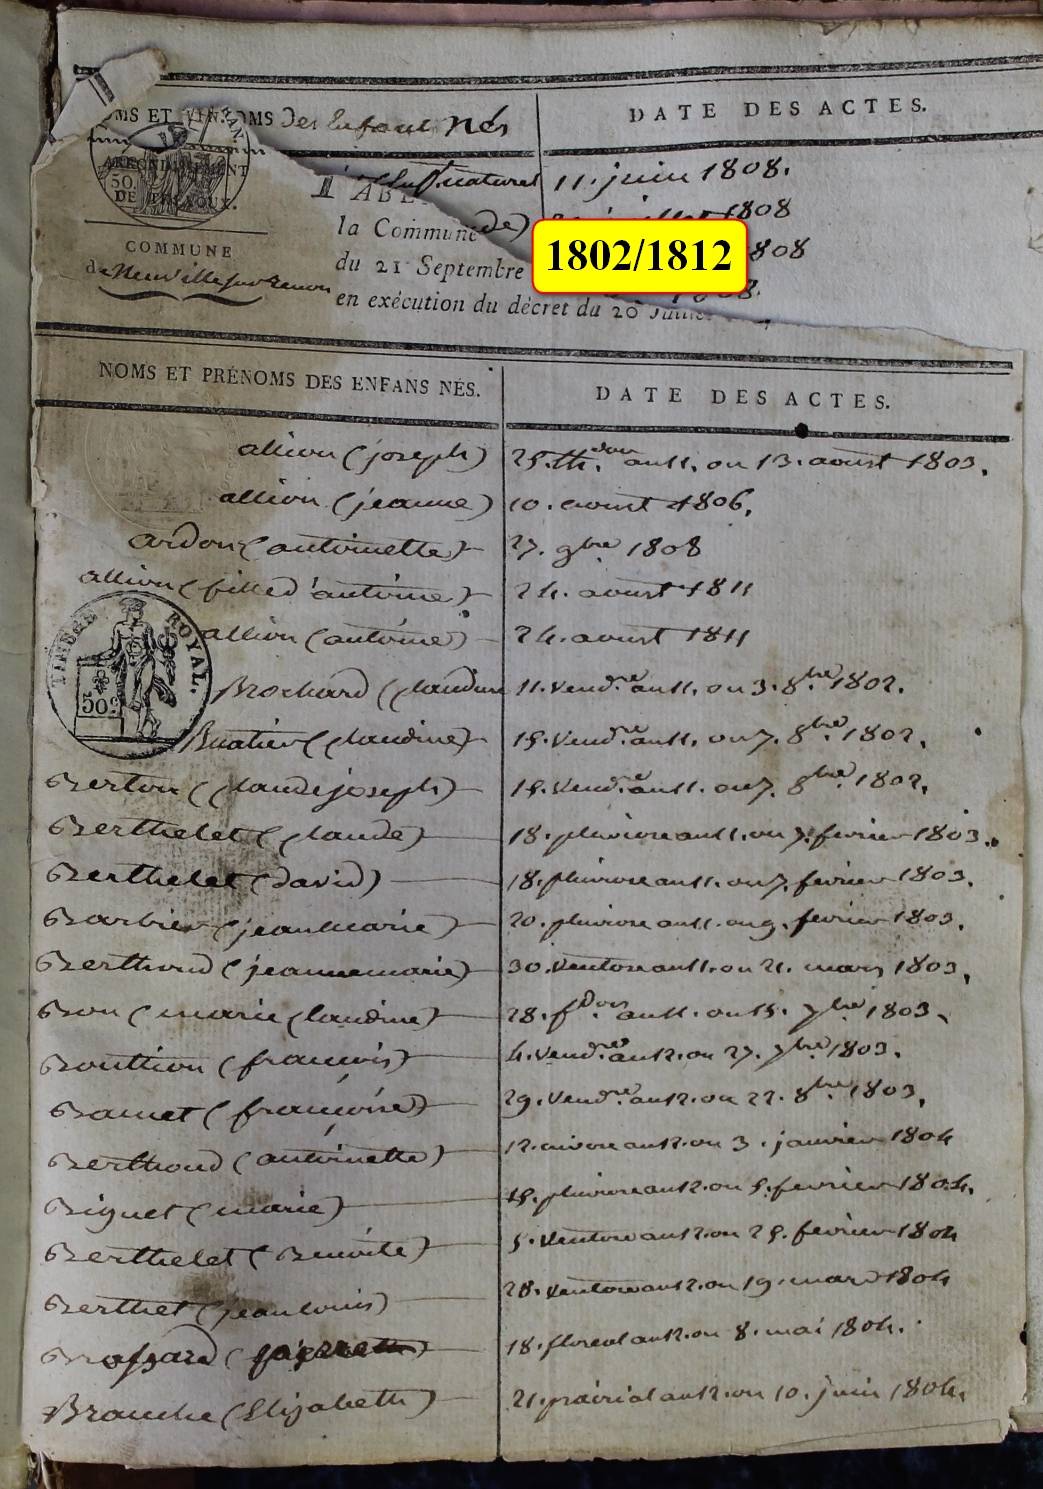 NOMS ET PRÉNOMS des Enfants nés
DATE DES ACTES.
ARRONDISSEMENT
50.
DE TRÉVOUX.
COMMUNE
de Neuville sur Renon
naturel
11. juin 1808.
de)
1808
la Commune
1802/1812
808
du 21 Septembre
en exécution du décret du 20 Juillet
NOMS ET PRÉNOMS DES ENFANS NÉS.
DATE DES ACTES.
allion (joseph) 25. th.dor an 11. ou 13. aoust 1803.
allion (jeanne) 10. aoust 1806.
ardon (antoinette) 27. 9bre 1808
allion (fille d'antoine) 24. aoust 1811
allion (antoine) 24. aoust 1811
TIMBRE ROYAL.
50c
Brochard (claudine 11. Vend.re an 11. ou 3. 8bre 1802.
Buatier (claudine) 15. Vend.re an 11. ou 7. 8bre 1802.
Berton (claude joseph) 15. Vend.re an 11. ou 7. 8bre 1802.
Berthelet (claude) 18. pluviose an 11. ou 7. fevrier 1803.
Berthelet (david) 18. pluviose an 11. ou 7. fevrier 1803.
Barbier (jean Marie) 20. pluviose an 11. ou 9. fevrier 1803.
Berthoud (jeanne marie) 30. Ventose an 11. ou 21. mars 1803.
Bon (marie claudine) 28. f.dor an 11. ou 15. 7bre 1803.
Bouttion (françois) 4. Vend.re an 12. ou 27. 7bre 1803.
Bamet (françoise) 29. Vend.re an 12. ou 22. 8bre 1803.
Berthoud (antoinette) 12. nivose an 12. ou 3. janvier 1804
Biguet (marie) 15. pluviose an 12. ou 5. fevrier 1804.
Berthelet (Benoite) 5. Ventose an 12. ou 25. fevrier 1804
Berthet (jean louis) 28. Ventose an 12. ou 19. mars 1804
Brossard ( 18. floreal an 12. ou 8. mai 1804.
Branche (Elizabeth) 21. prairial an 12. ou 10. juin 1804.